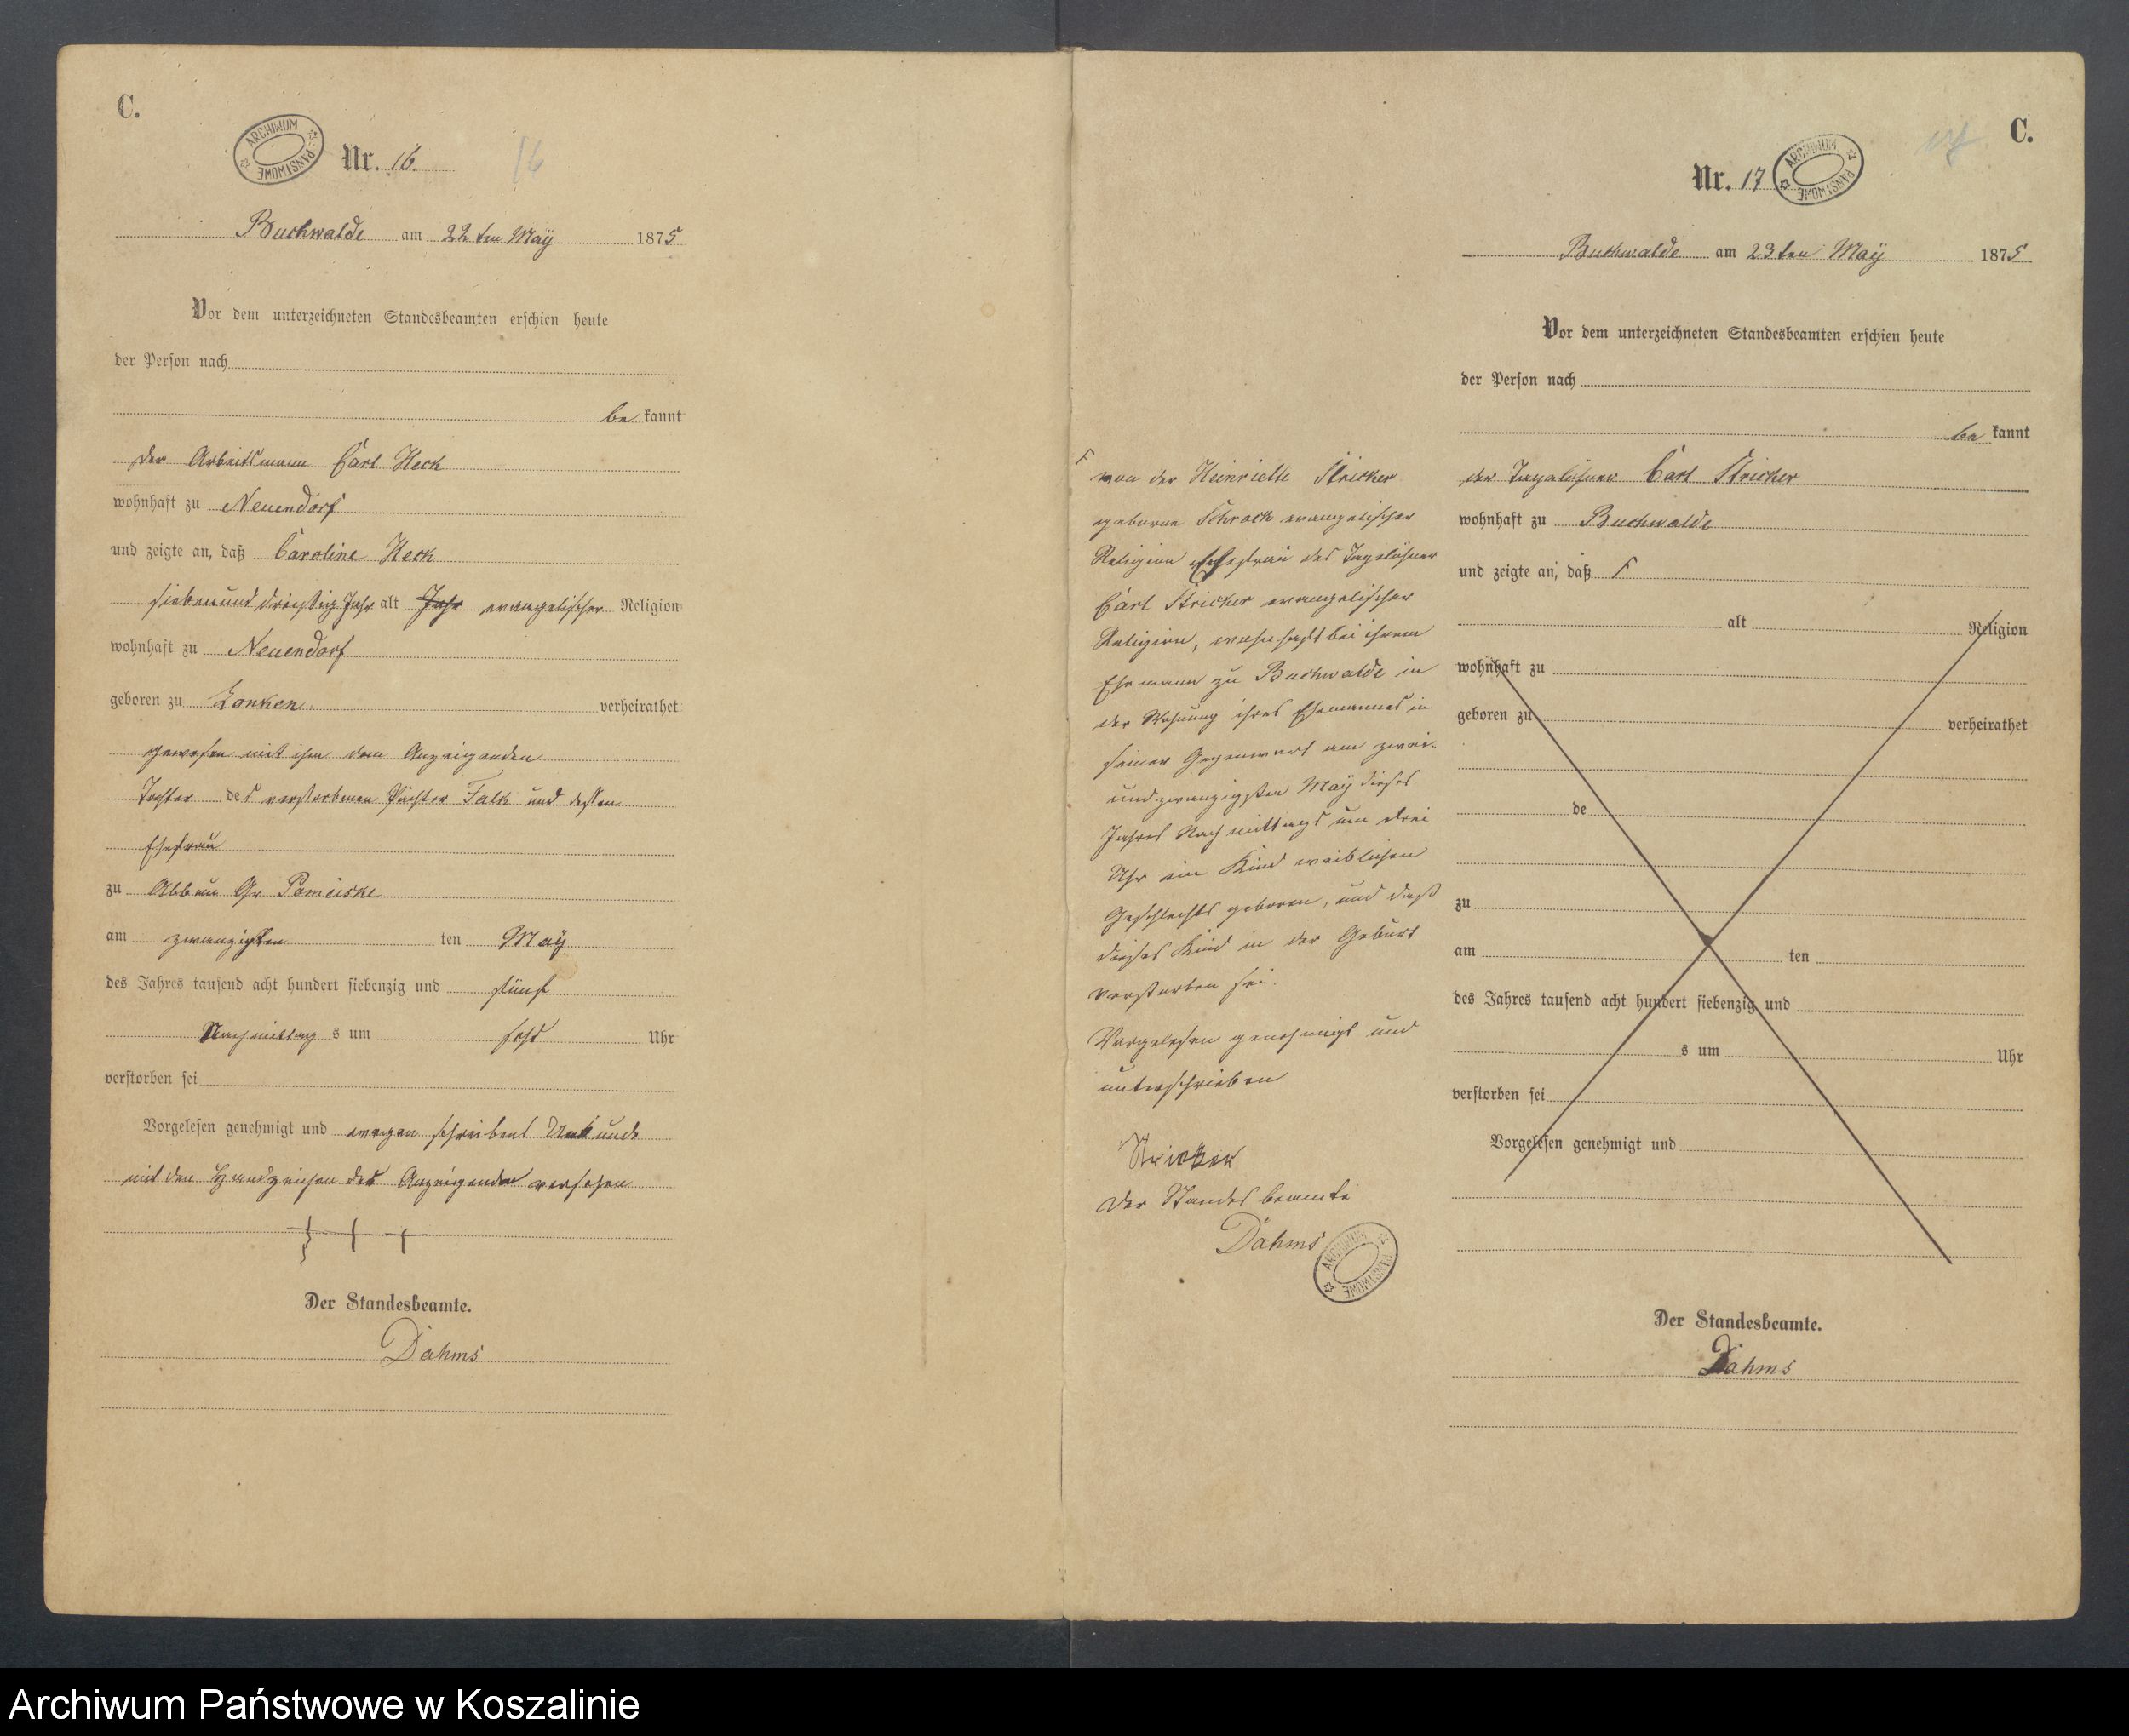 C.
ARCHIWUM PAŃSTWOWE
Nr. 16. 16
Buchwalde am 22ten Maÿ 1875
Vor dem unterzeichneten Standesbeamten erschien heute
der Person nach
be kannt
der Arbeitsmann Carl Heck
wohnhaft zu Neuendorf
und zeigte an, daß Caroline Heck
siebenunddreißig Jahr alt Jahr evangelischer Religion
wohnhaft zu Neuendorf
geboren zu Lanken verheirathet
gewesen mit ihm dem Anzeigenden
Tochter des verstorbenen Pächter Falk und dessen
Ehefrau
zu Abbau Gr Pomeiske
am zwanzigsten ten Maÿ
des Jahres tausend acht hundert siebenzig und fünf
Nachmittag s um sechs Uhr
verstorben sei
Vorgelesen genehmigt und wegen schreibens Unkunde
mit den Handzeichen des Anzeigenden versehen
+ + +
Der Standesbeamte.
Dahms
C.
17
Nr. 17
ARCHIWUM PAŃSTWOWE
Buchwalde am 23ten Maÿ 1875
Vor dem unterzeichneten Standesbeamten erschien heute
der Person nach
be kannt
der Tagelöhner Carl Stricker
wohnhaft zu Buchwalde
und zeigte an, daß F
alt Religion
wohnhaft zu
geboren zu verheirathet
de
zu
am ten
des Jahres tausend acht hundert siebenzig und
s um Uhr
verstorben sei
Vorgelesen genehmigt und
Der Standesbeamte.
Dahms
F
von der Heinriette Stricker
geborne Schrock evangelischer
Religion Ehefrau des Tagelöhner
Carl Stricker evangelischer
Religion, wohnhaft bei ihrem
Ehemann zu Buchwalde in
der Wohnung ihres Ehemannes in
seiner Gegenwart am zwei-
undzwanzigsten Maÿ dieses
Jahres Nachmittags um drei
Uhr ein Kind weiblichen
Geschlechts geboren, und daß
dieses Kind in der Geburt
verstorben sei.
Vorgelesen genehmigt und
unterschrieben
Stricker
Der Standesbeamte
Dahms
ARCHIWUM PAŃSTWOWE
Archiwum Państwowe w Koszalinie